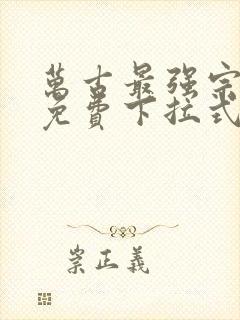 萬古最强宗
免費下拉式
崇正義